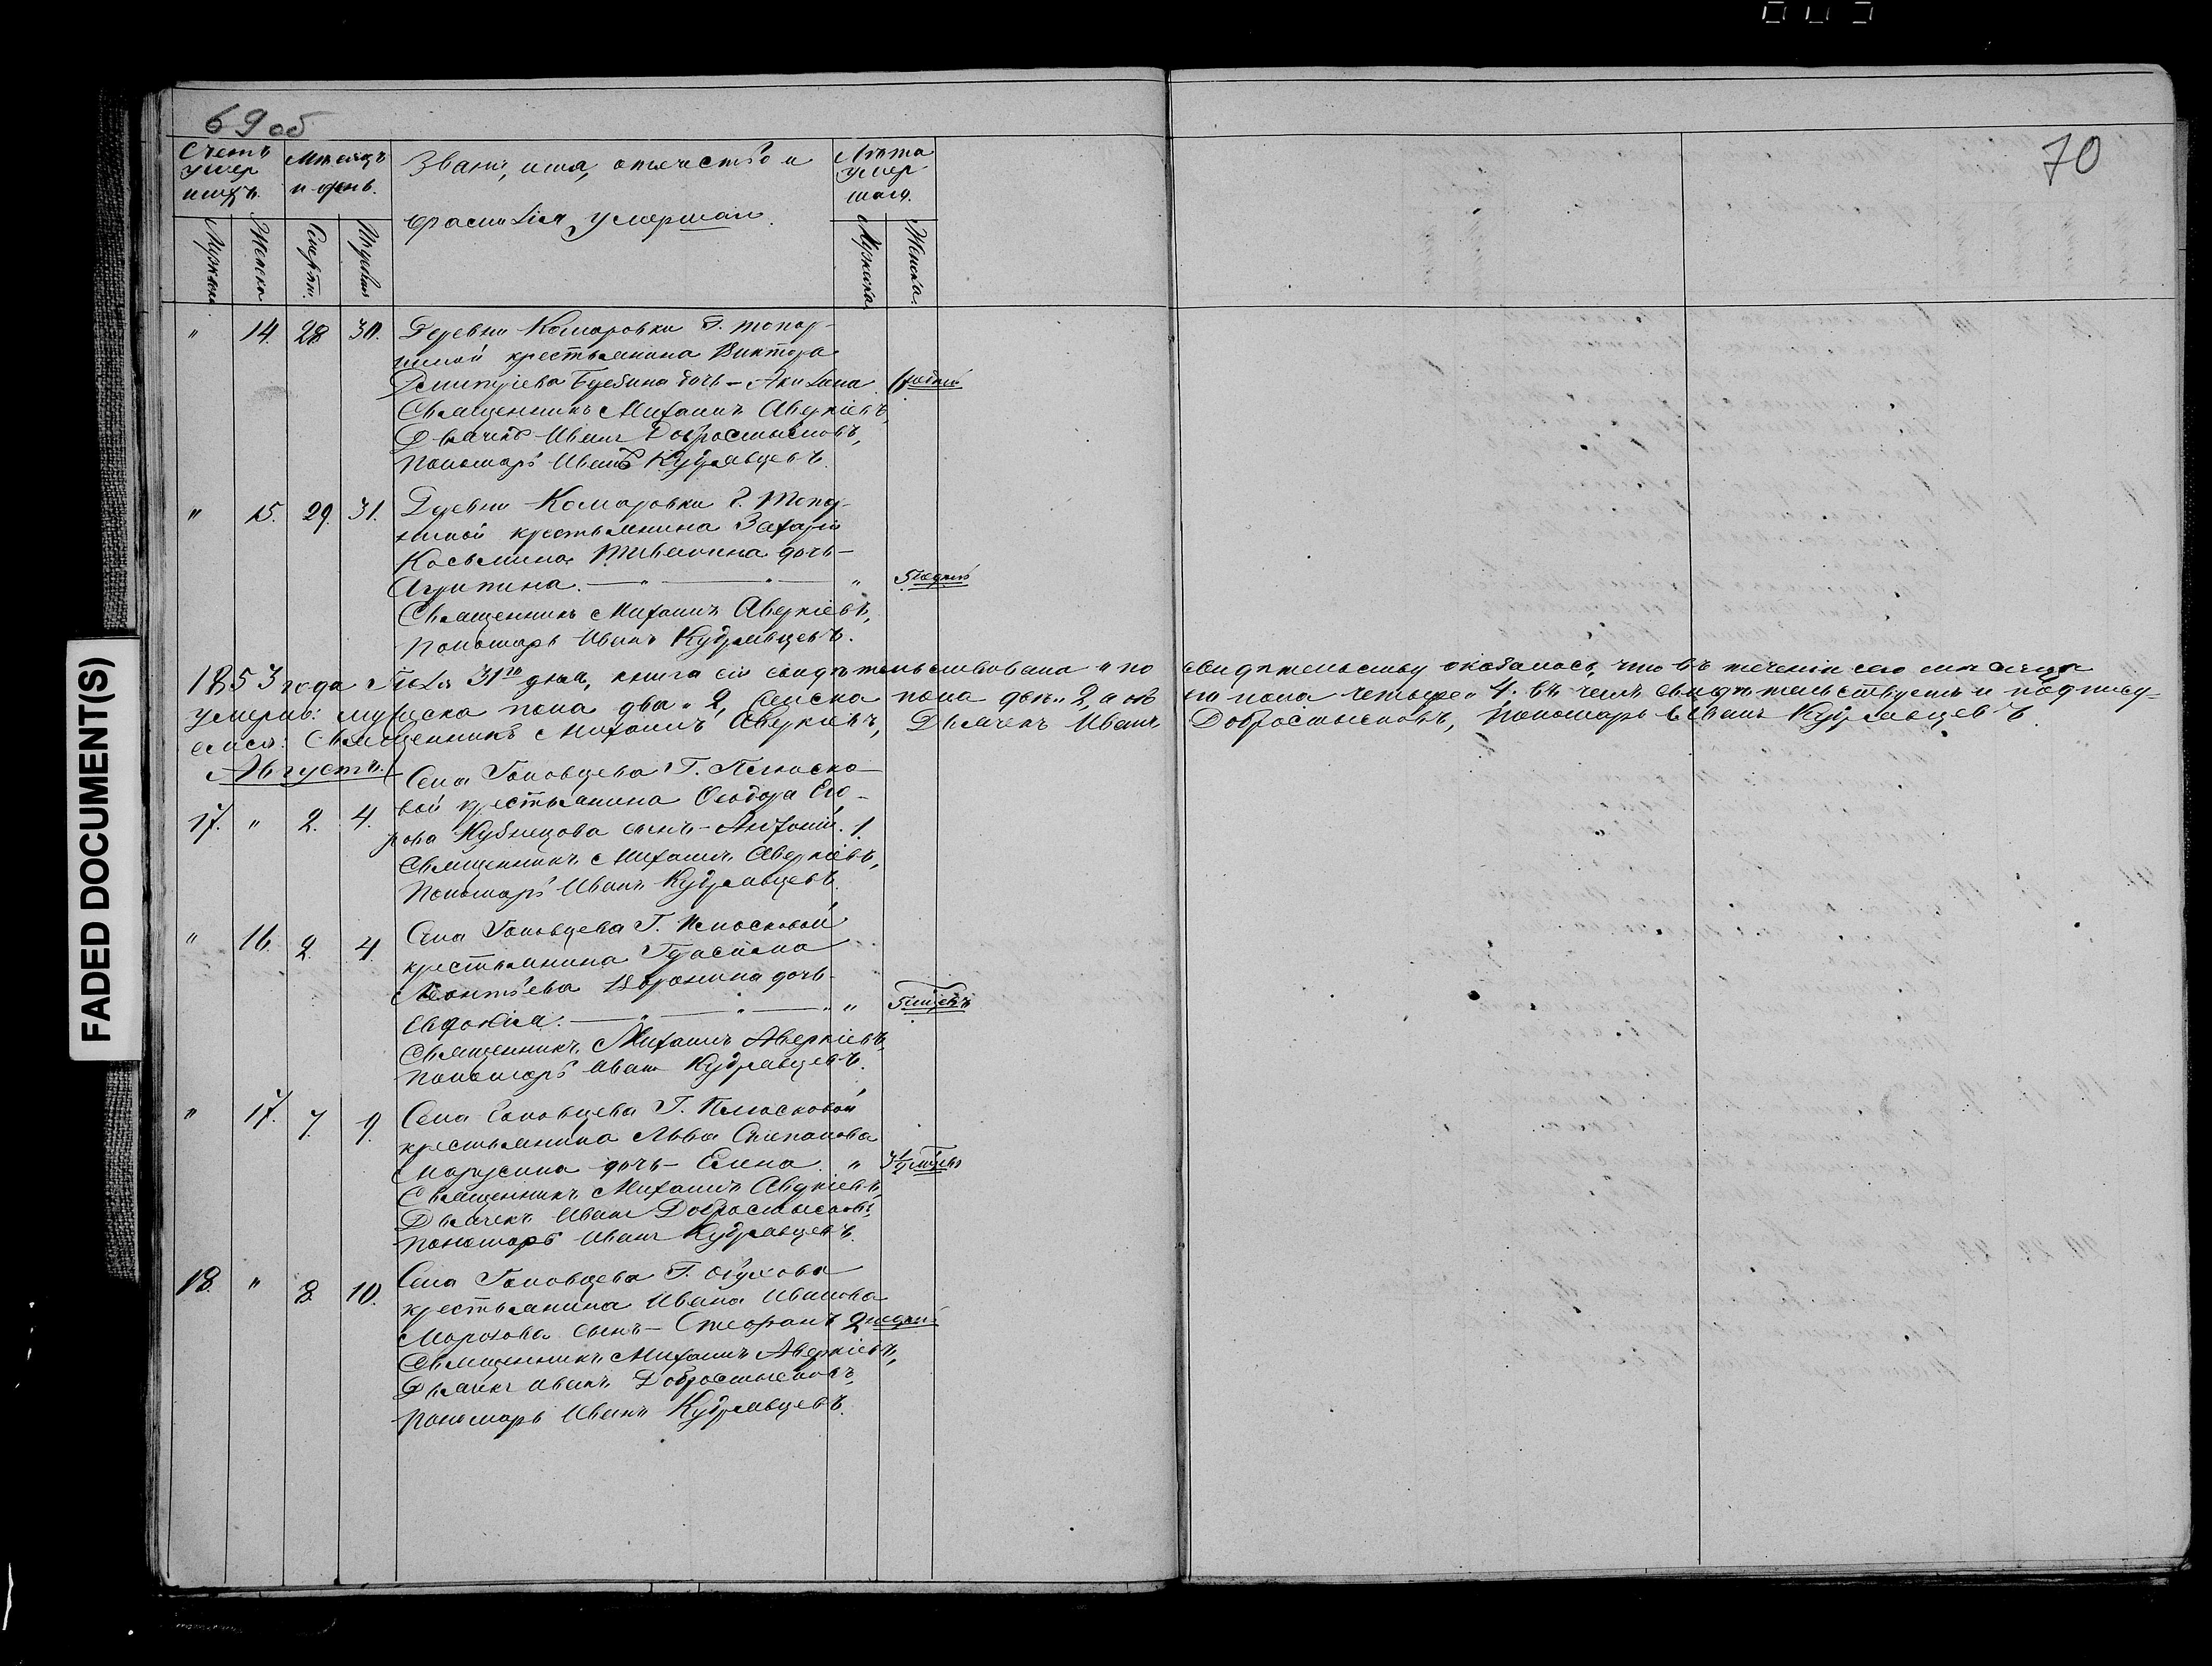 69 об
70
Счетъ умер шихъ.
Мѣсяцъ и день.
Званіе, имя, отечество и фамилія умершаго.
Лѣта умер шаго.
Мужеска. Женска. Смерти. Мужеска Женска.
" 14. 28 30. Деревни Комаровки Г.
крестьянина Виктора
Дмитріева дочь – Акилина
Священникъ Михаилъ Аверкіевъ,
Дьячекъ Иванъ Добросмысловъ,
Пономарь Иванъ Кудрявцевъ.
" 15. 29. 31. Деревни Комаровки Г.
крестьянина Захарія
Косьмина дочь –
Агрипина. — " — " — " 5 недѣль
Священникъ Михаилъ Аверкіевъ,
Пономарь Иванъ Кудрявцевъ.
1853 года Іюля 31го дня, книга сія свидѣтельствована и по свидѣтельству оказалось, что въ теченіи сего мѣсяца
умерло: мужеска пола два " 2, женска пола " 2, а пола четыре " 4. въ чемъ свидѣтельствуемъ и подпису-
емся: Священникъ Михаилъ Аверкіевъ, Дьячекъ Иванъ Добросмысловъ, Пономарь Иванъ Кудрявцевъ.
Августъ. Села Головцева Г. Плюско-
17. " 2. 4. вой крестьянина Ѳеодора Его-
рова Кузнецова сынъ – Антоній. 1.
Священникъ Михаилъ Аверкіевъ,
Пономарь Иванъ Кудрявцевъ.
" 16. 2. 4. Села Головцева Г. Плюсковой
крестьянина Герасима
Леонтьева Воронина дочь –
Евфимія. — " — " — " " 5 мцевъ
Священникъ Михаилъ Аверкіевъ,
Пономарь Иванъ Кудрявцевъ.
" 17. 7. 9. Села Головцева Г. Плюсковой
крестьянина Льва Степанова
дочь – Елена. "
Священникъ Михаилъ Аверкіевъ,
Дьячекъ Иванъ Добросмысловъ,
Пономарь Иванъ Кудрявцевъ.
18. " 8. 10. Села Головцева Г. Обухова
крестьянина Ивана Иванова
Морозова сынъ – Стефанъ 2 недѣли
Священникъ Михаилъ Аверкіевъ,
Дьячекъ Иванъ Добросмысловъ,
Пономарь Иванъ Кудрявцевъ.
FADED DOCUMENT(S)